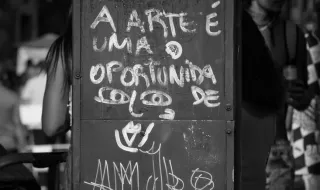 A ARTE É
UMA O
OPORTUNIDA
DE